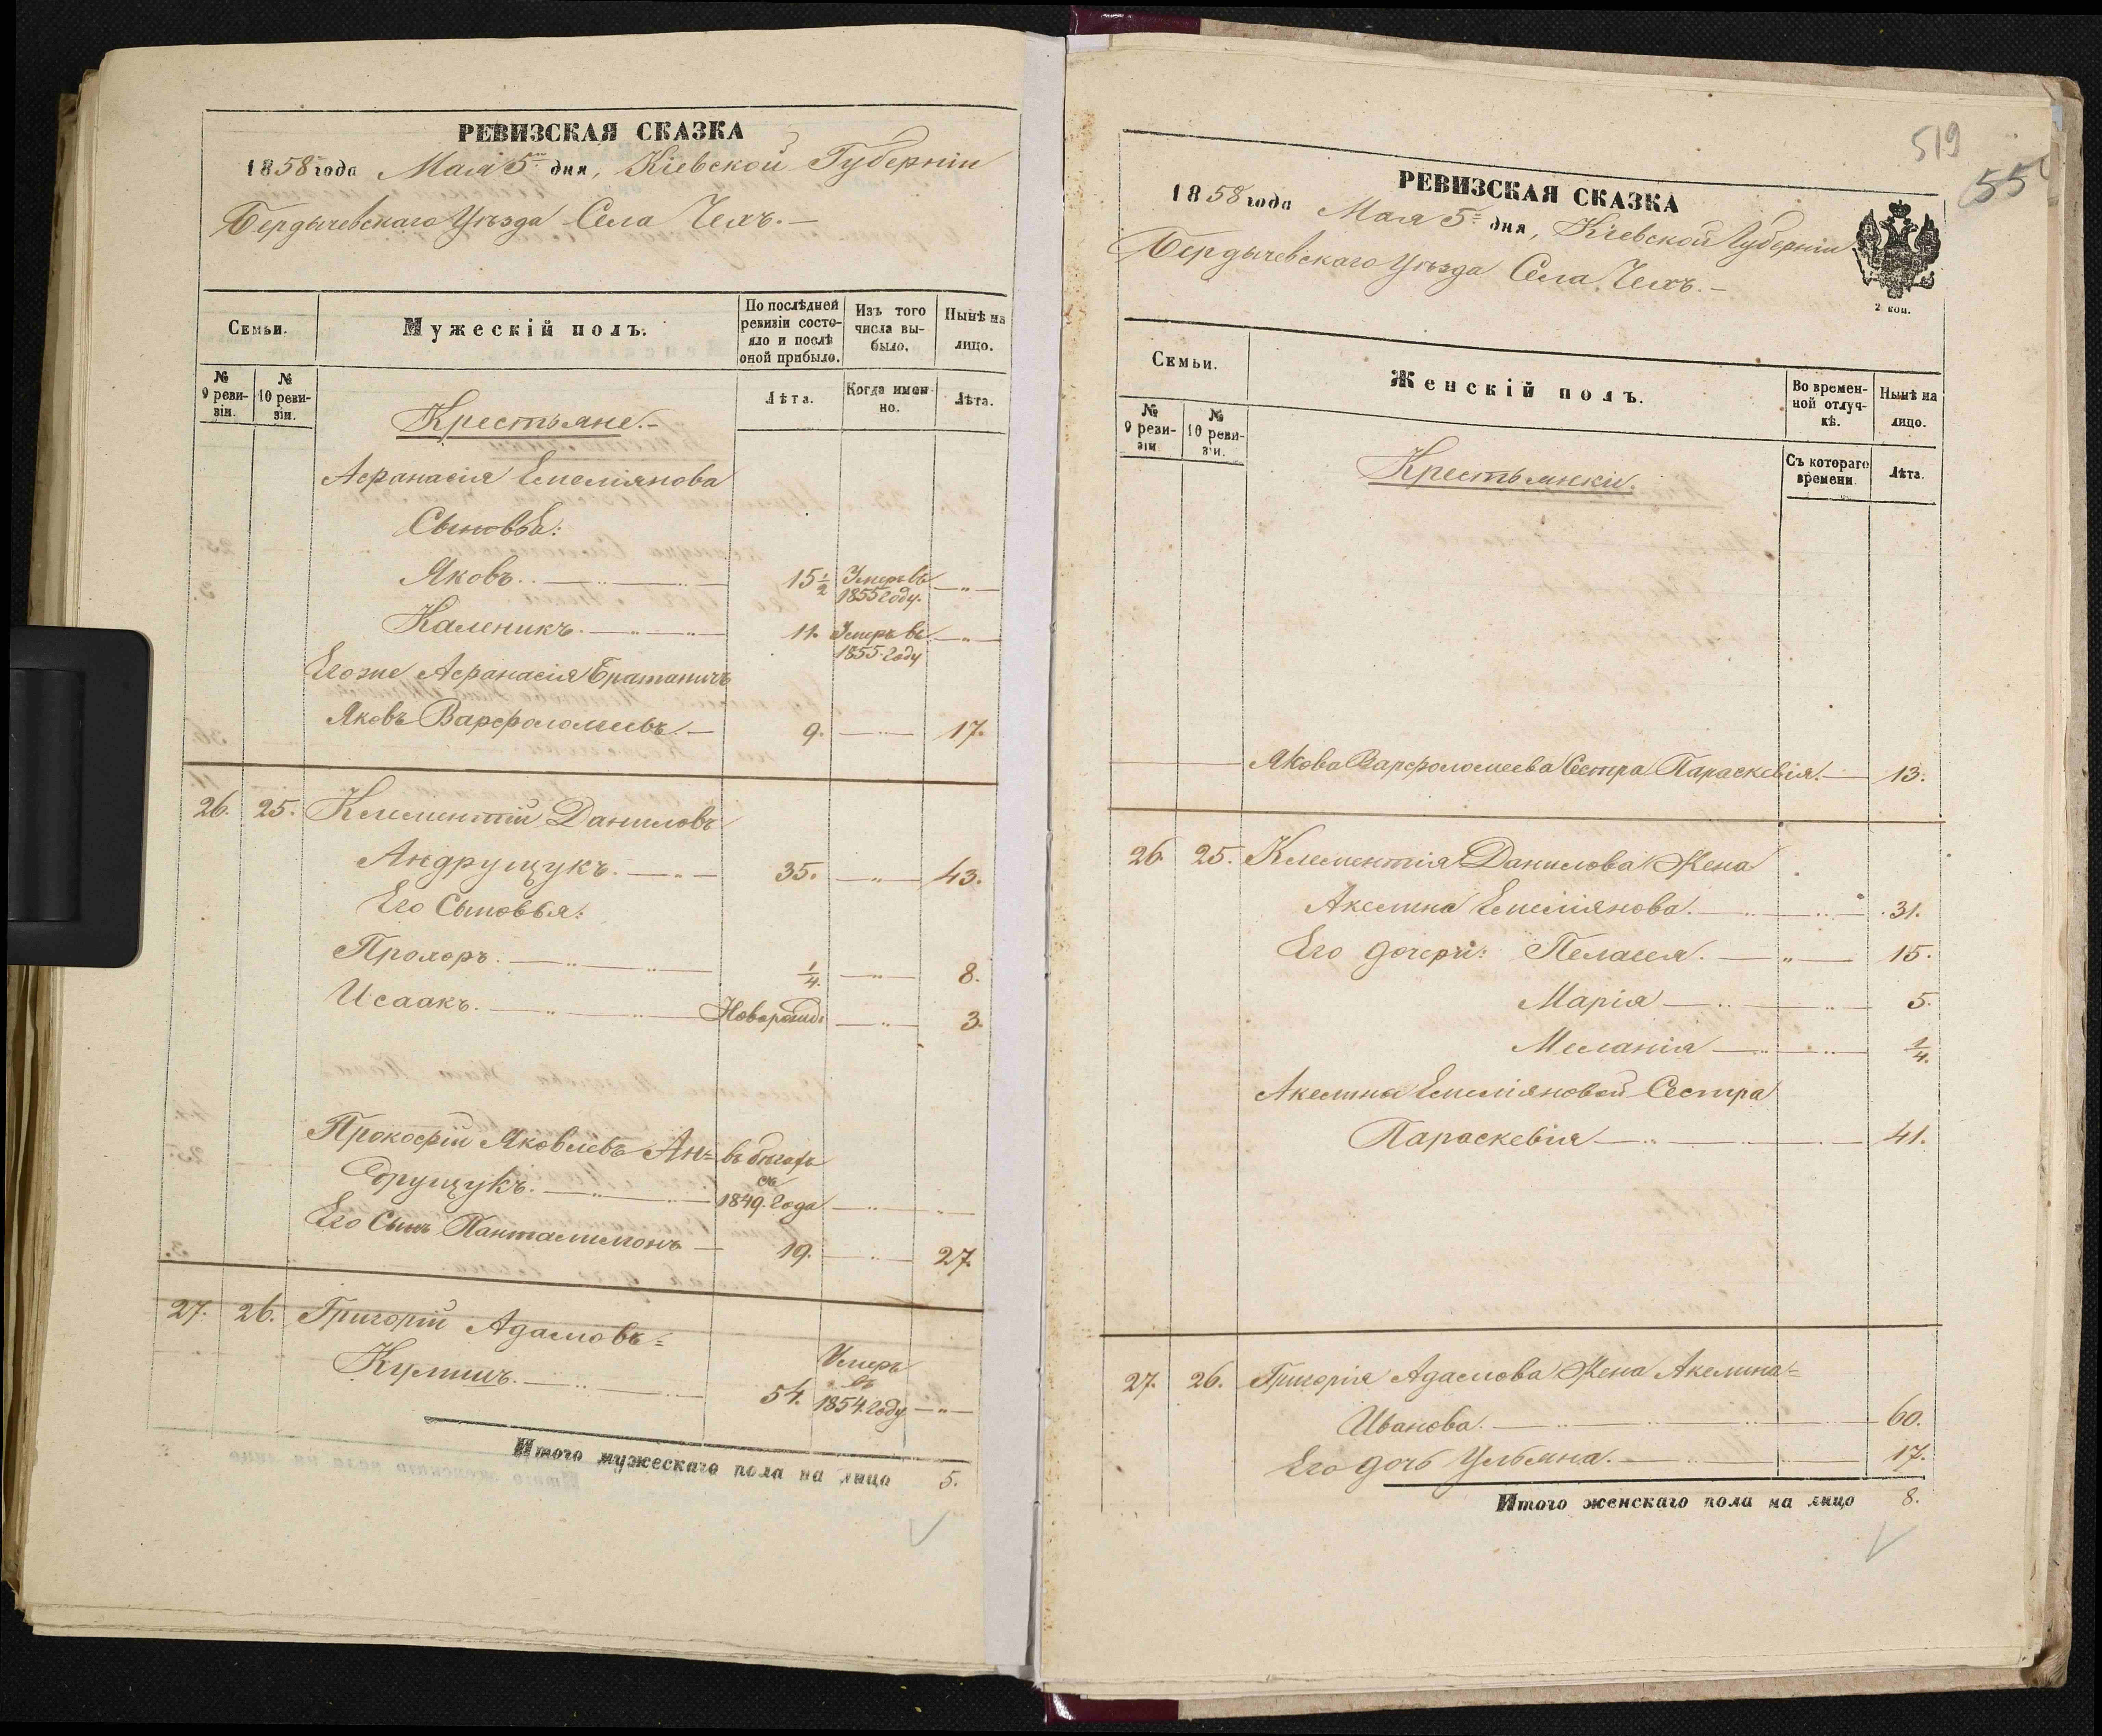 РЕВИЗСКАЯ СКАЗКА
1858 года Мая 5 дня, Кіевской Губерніи
Бердычевскаго Уѣзда Села Чехъ.
Семьи.
Мужескій полъ.
По послѣдней ревизіи состояло и послѣ оной прибыло.
Изъ того числа выбыло.
Нынѣ на лицо.
№ 9 ревизіи.
№ 10 ревизіи.
Лѣта.
Когда именно.
Лѣта.
Крестьяне.
Афанасія Емеліянова
Сыновья:
Яковъ. 15 1/2 Умеръ въ 1855 году.
Каленикъ. 11. Умеръ въ 1855 году
Егоже Афанасія Братаничъ
Яковъ Варфоломеевъ 9. 17.
26. 25. Клементій Даниловъ
Андрущукъ. 35. 43.
Его Сыновья:
Прохоръ. 1/4. 8.
Исаакъ. Новорожд. 3.
Прокофій Яковлевъ Ан= въ бѣгахъ
друщукъ. съ 1849. года
Его Сынъ Пантелимонъ 19. 27.
27. 26. Григорій Адамовъ=
Кулишъ. 54. Умеръ въ 1854. году
Итого мужескаго пола на лицо 5.
519
55
РЕВИЗСКАЯ СКАЗКА
1858 года Мая 5 дня, Кіевской Губерніи
Бердычевскаго Уѣзда Села Чехъ.
2 коп.
Семьи.
Женскій полъ.
Во временной отлучкѣ.
Нынѣ на лицо.
№ 9 ревизіи
№ 10 ревизіи.
Съ котораго времени.
Лѣта.
Крестьянки.
Якова Варфоломеева Сестра Параскевія. 13.
26. 25. Клементія Данилова Жена
Акелина Емеліянова. 31.
Его дочери: Пелагея. 15.
Марія 5.
Меланія 1/4.
Акелины Емеліяновой Сестра
Параскевія 41.
27. 26. Григорія Адамова Жена Акелина=
Иванова. 60.
Его дочь Ульяна. 17.
Итого женскаго пола на лицо 8.